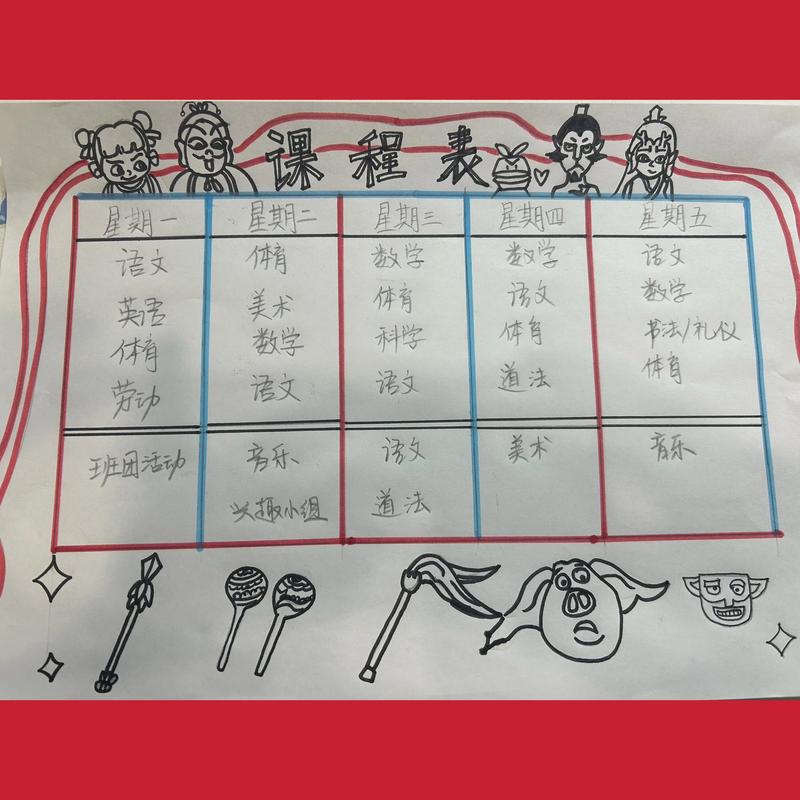 课程表
星期一 星期二 星期三 星期四 星期五
语文 体育 数学 数学 语文
英语 美术 体育 语文 数学
体育 数学 科学 体育 书法/礼仪
劳动 语文 语文 道法 体育
班团活动 音乐 语文 美术 音乐
兴趣小组 道法